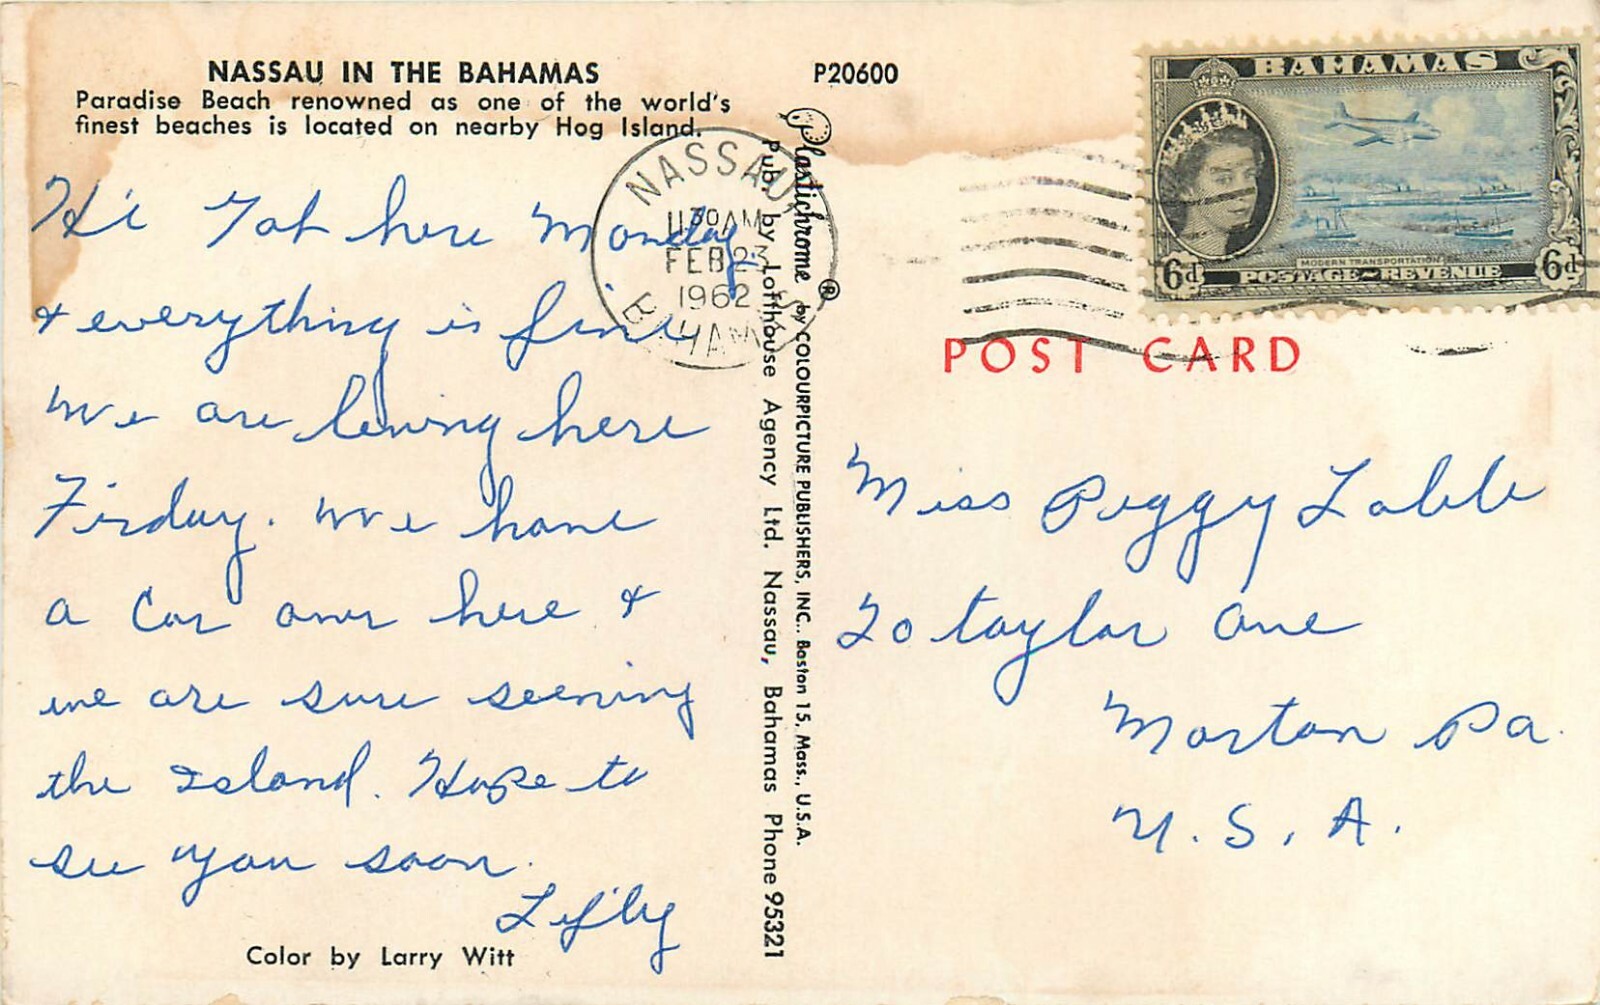 NASSAU IN THE BAHAMAS
Paradise Beach renowned as one of the world's
finest beaches is located on nearby Hog Island.
P20600
Hi Got here Monday
& everything is fine
We are leaving here
Firday. We have
a Car over here &
we are sure seening
the Island. Hope to
see you soon.
Lefty
Color by Larry Witt
Plastichrome ® by COLOURPICTURE PUBLISHERS, INC. Boston 15, Mass., U.S.A.
Pub. by Lofthouse Agency Ltd. Nassau, Bahamas Phone 95321
NASSAU
1130 AM
FEB 23
1962
BAHAMAS
BAHAMAS
MODERN TRANSPORTATION
6d POSTAGE~REVENUE 6d
POST CARD
Miss Peggy
20 taylor ave
Morton Pa.
U.S.A.